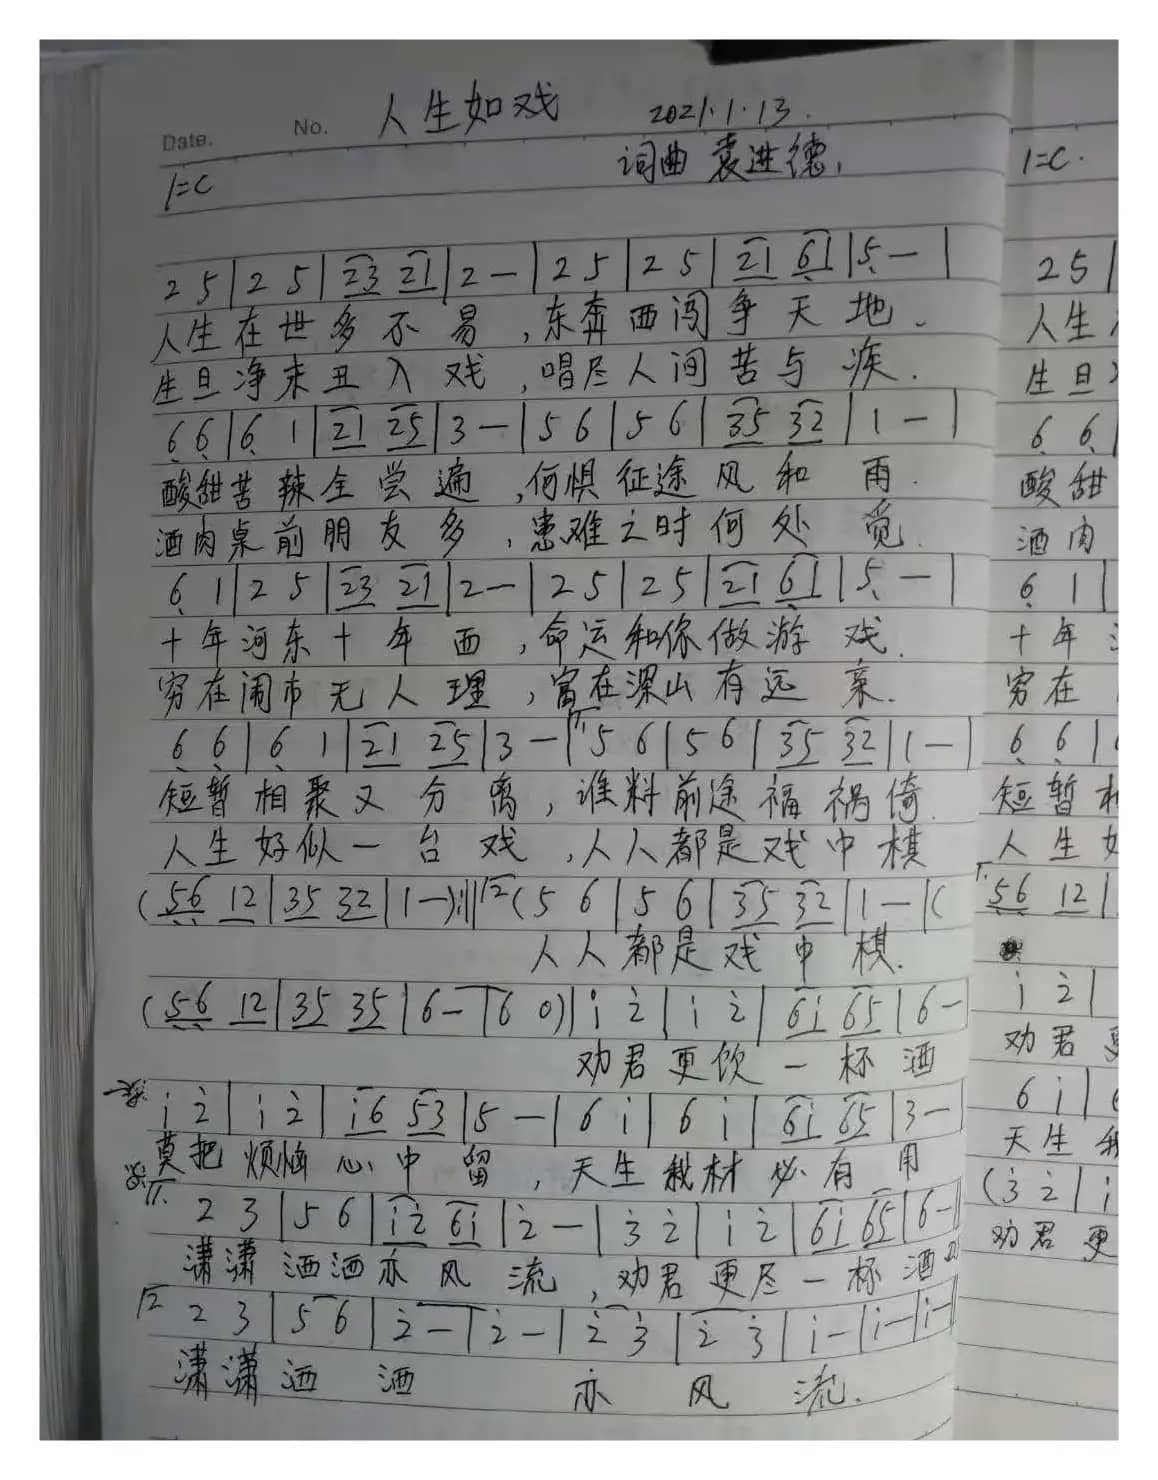 人生如戏 2021.1.13.
Date. No.
词曲 袁进德.
1=C
2 5 | 2 5 | 23 21 | 2 — | 2 5 | 2 5 | 21 6̣1 | 5̣ — |
人生在世多不易,东奔西闯争天地.
生旦净末丑入戏,唱尽人间苦与疾.
6̣ 6̣ | 6̣ 1 | 21 25 | 3 — | 5 6 | 5 6 | 35 32 | 1 — |
酸甜苦辣全尝遍,何惧征途风和雨.
酒肉桌前朋友多,患难之时何处觅.
6̣ 1 | 2 5 | 23 21 | 2 — | 2 5 | 2 5 | 21 6̣1 | 5̣ — |
十年河东十年西,命运和你做游戏.
穷在闹市无人理,富在深山有远亲.
6̣ 6̣ | 6̣ 1 | 21 25 | 3 — | 1. 5 6 | 5 6 | 35 32 | 1 — |
短暂相聚又分离,谁料前途福祸倚.
人生好似一台戏,人人都是戏中棋
(5̣6̣ 12 | 35 32 | 1 —) :|| 2 (5 6 | 5 6 | 35 32 | 1 — | (
人人都是戏中棋.
(5̣6̣ 12 | 35 35 | 6 — | 6 0) | i 2̇ | i 2̇ | 6i 65 | 6 —
劝君更饮一杯酒
i 2̇ | i 2̇ | i6 53 | 5 — | 6 i | 6 i | 6i 65 | 3 — |
莫把烦恼心中留,天生我材必有用
1. 2 3 | 5 6 | i2̇ 6i | 2̇ — | 3̇ 2̇ | i 2̇ | 6i 65 | 6 — ||
潇潇洒洒亦风流,劝君更尽一杯酒
2 2 3 | 5 6 | 2̇ — | 2̇ — | 2̇ 3̇ | 2̇ 3̇ | i — | i — | i — ||
潇潇洒洒亦风流.
1=C.
2 5 |
人生
生旦
6̣ 6̣
酸甜
酒肉
6̣ 1 |
十年
穷在
6̣ 6̣ |
短暂
人生
1. 5̣6̣ 12 |
i 2̇ |
劝君
6 i |
天生
(3̇ 2̇ | i
劝君更